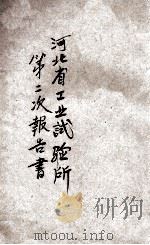 河北省工业试验所
第二次報告書
mtoou.info